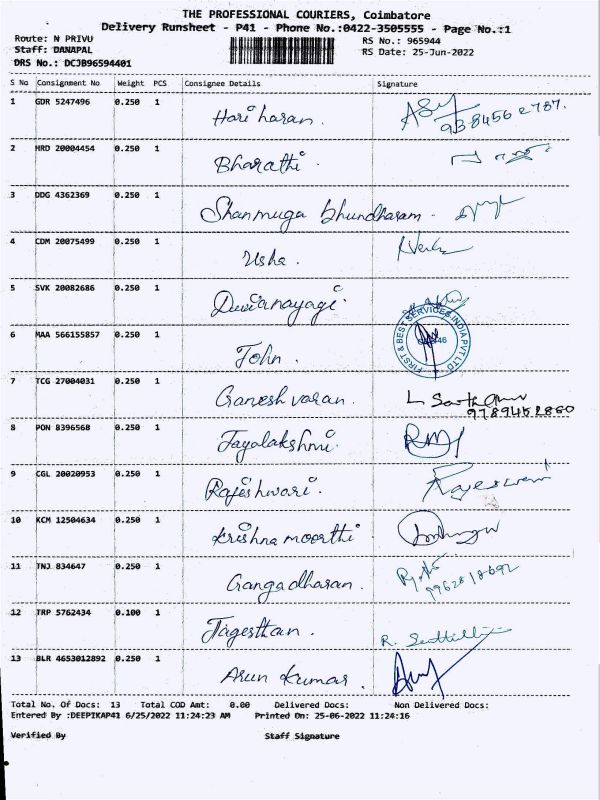 THE PROFESSIONAL COURIERS, Coimbatore
Delivery Runsheet - P41 - Phone No.:0422-3505555 - Page No.:1
Route: N PRIVU RS No.: 965944
Staff: DANAPAL RS Date: 25-Jun-2022
DRS No.: DCJB96594401
S No Consignment No Weight PCS Consignee Details Signature
1 GDR 5247496 0.250 1 Hari haran.
2 HRD 20004454 0.250 1 Bharathi.
3 DDG 4362369 0.250 1 Shanmuga bhundharam-
4 CDM 20075499 0.250 1 Usha.
5 SVK 20082686 0.250 1
FIRST & BEST SERVICES INDIA PVT LTD
6 MAA 566155857 0.250 1 John.
7 TCG 27004031 0.250 1 Ganesh varan.
9789452860
8 PON 8396568 0.250 1 Jayalakshmi.
9 CGL 20020953 0.250 1 Rajeshwari. Rajeswari
10 KCM 12504634 0.250 1 Krishna moorthi
11 TNJ 834647 0.250 1 Gangadharan.
12 TRP 5762434 0.100 1
13 BLR 4653012892 0.250 1 Arun Kumar.
Total No. Of Docs: 13 Total COD Amt: 0.00 Delivered Docs: Non Delivered Docs:
Entered By :DEEPIKAP41 6/25/2022 11:24:23 AM Printed On: 25-06-2022 11:24:16
Verified By Staff Signature